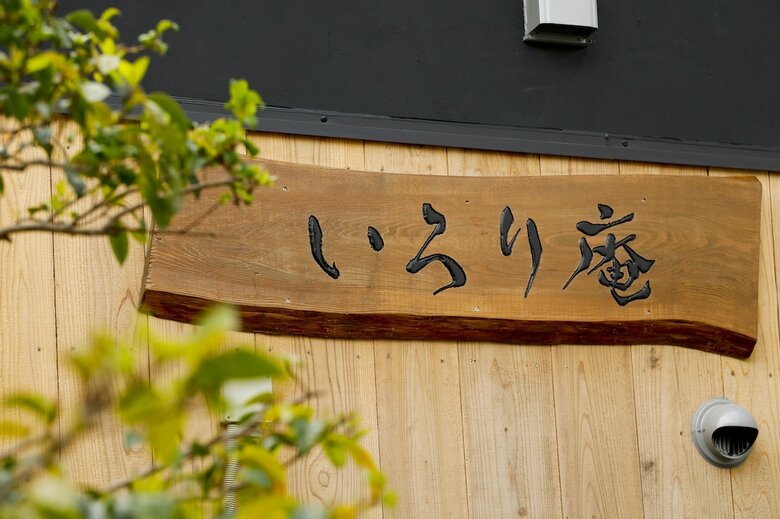 いろり庵